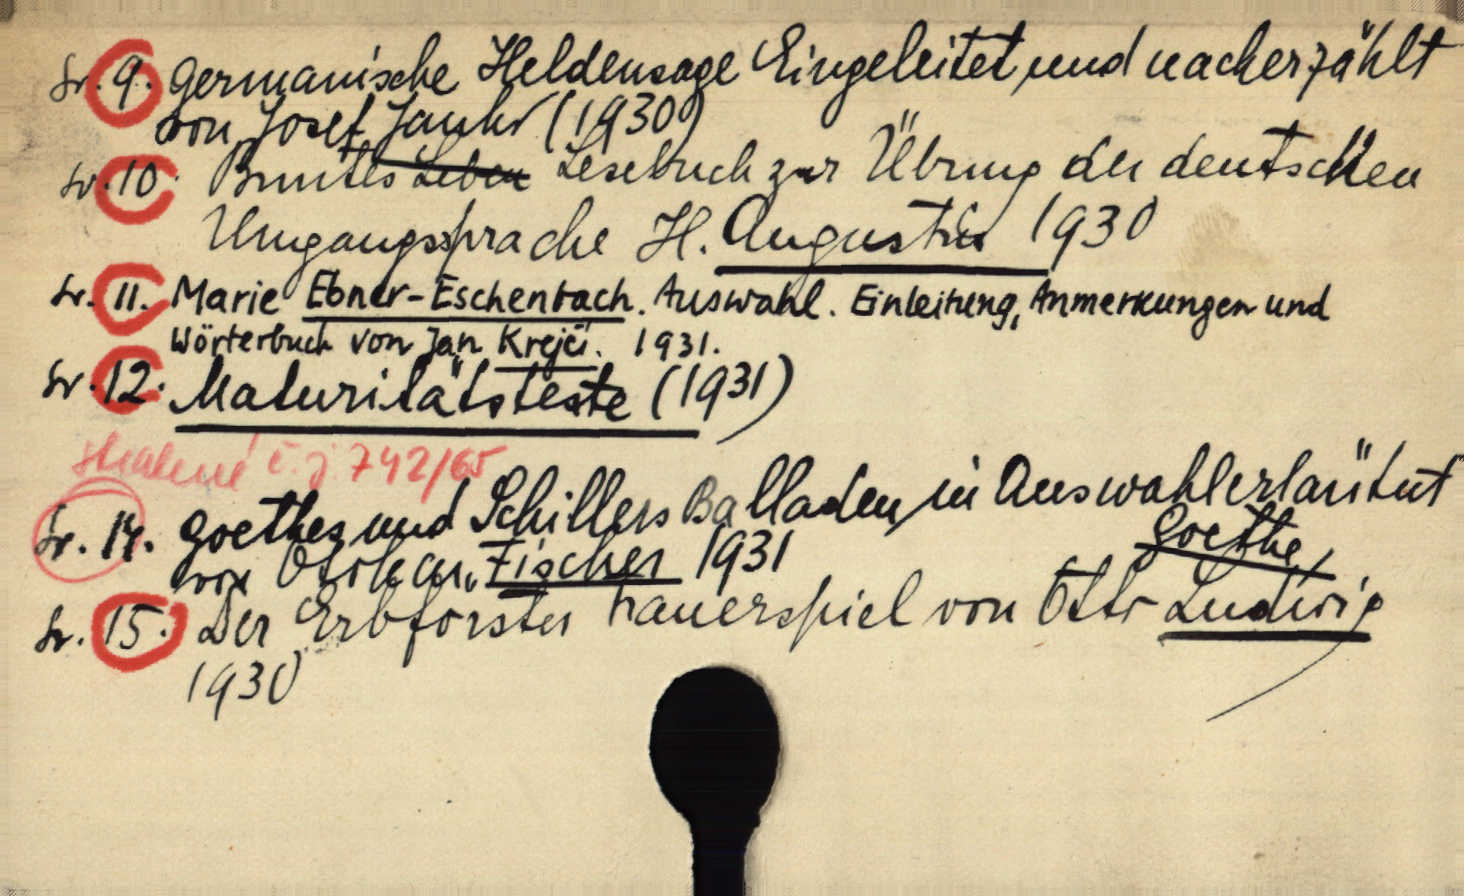 Sv. 9. Germanische Heldensage Eingeleitet und nacherzählt
von Josef Janko (1930)
Sv. 10. Buntes Leben Lesebuch zur Übung der deutschen
Umgangssprache H. Augustin 1930
Sv. 11. Marie Ebner-Eschenbach. Auswahl. Einleitung, Anmerkungen und
Wörterbuch von Jan Krejčí. 1931.
Sv. 12. Maturitätsteste (1931)
č. j. 742/65
Sv. 14. Goethes und Schillers Balladen in Auswahl erläutert
von Otokar Fischer 1931
Goethe
Sv. 15. Der Erbförster Trauerspiel von Otto Ludwig
1930